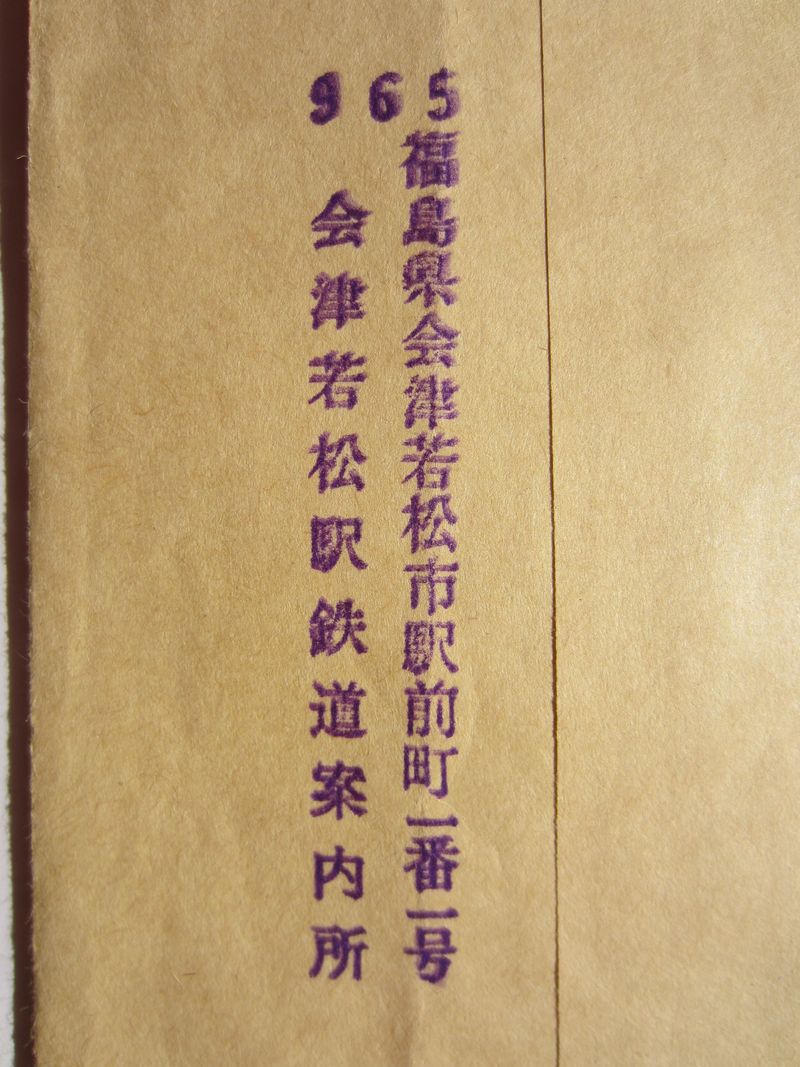 965
福島県会津若松市駅前町一番一号
会津若松駅鉄道案内所